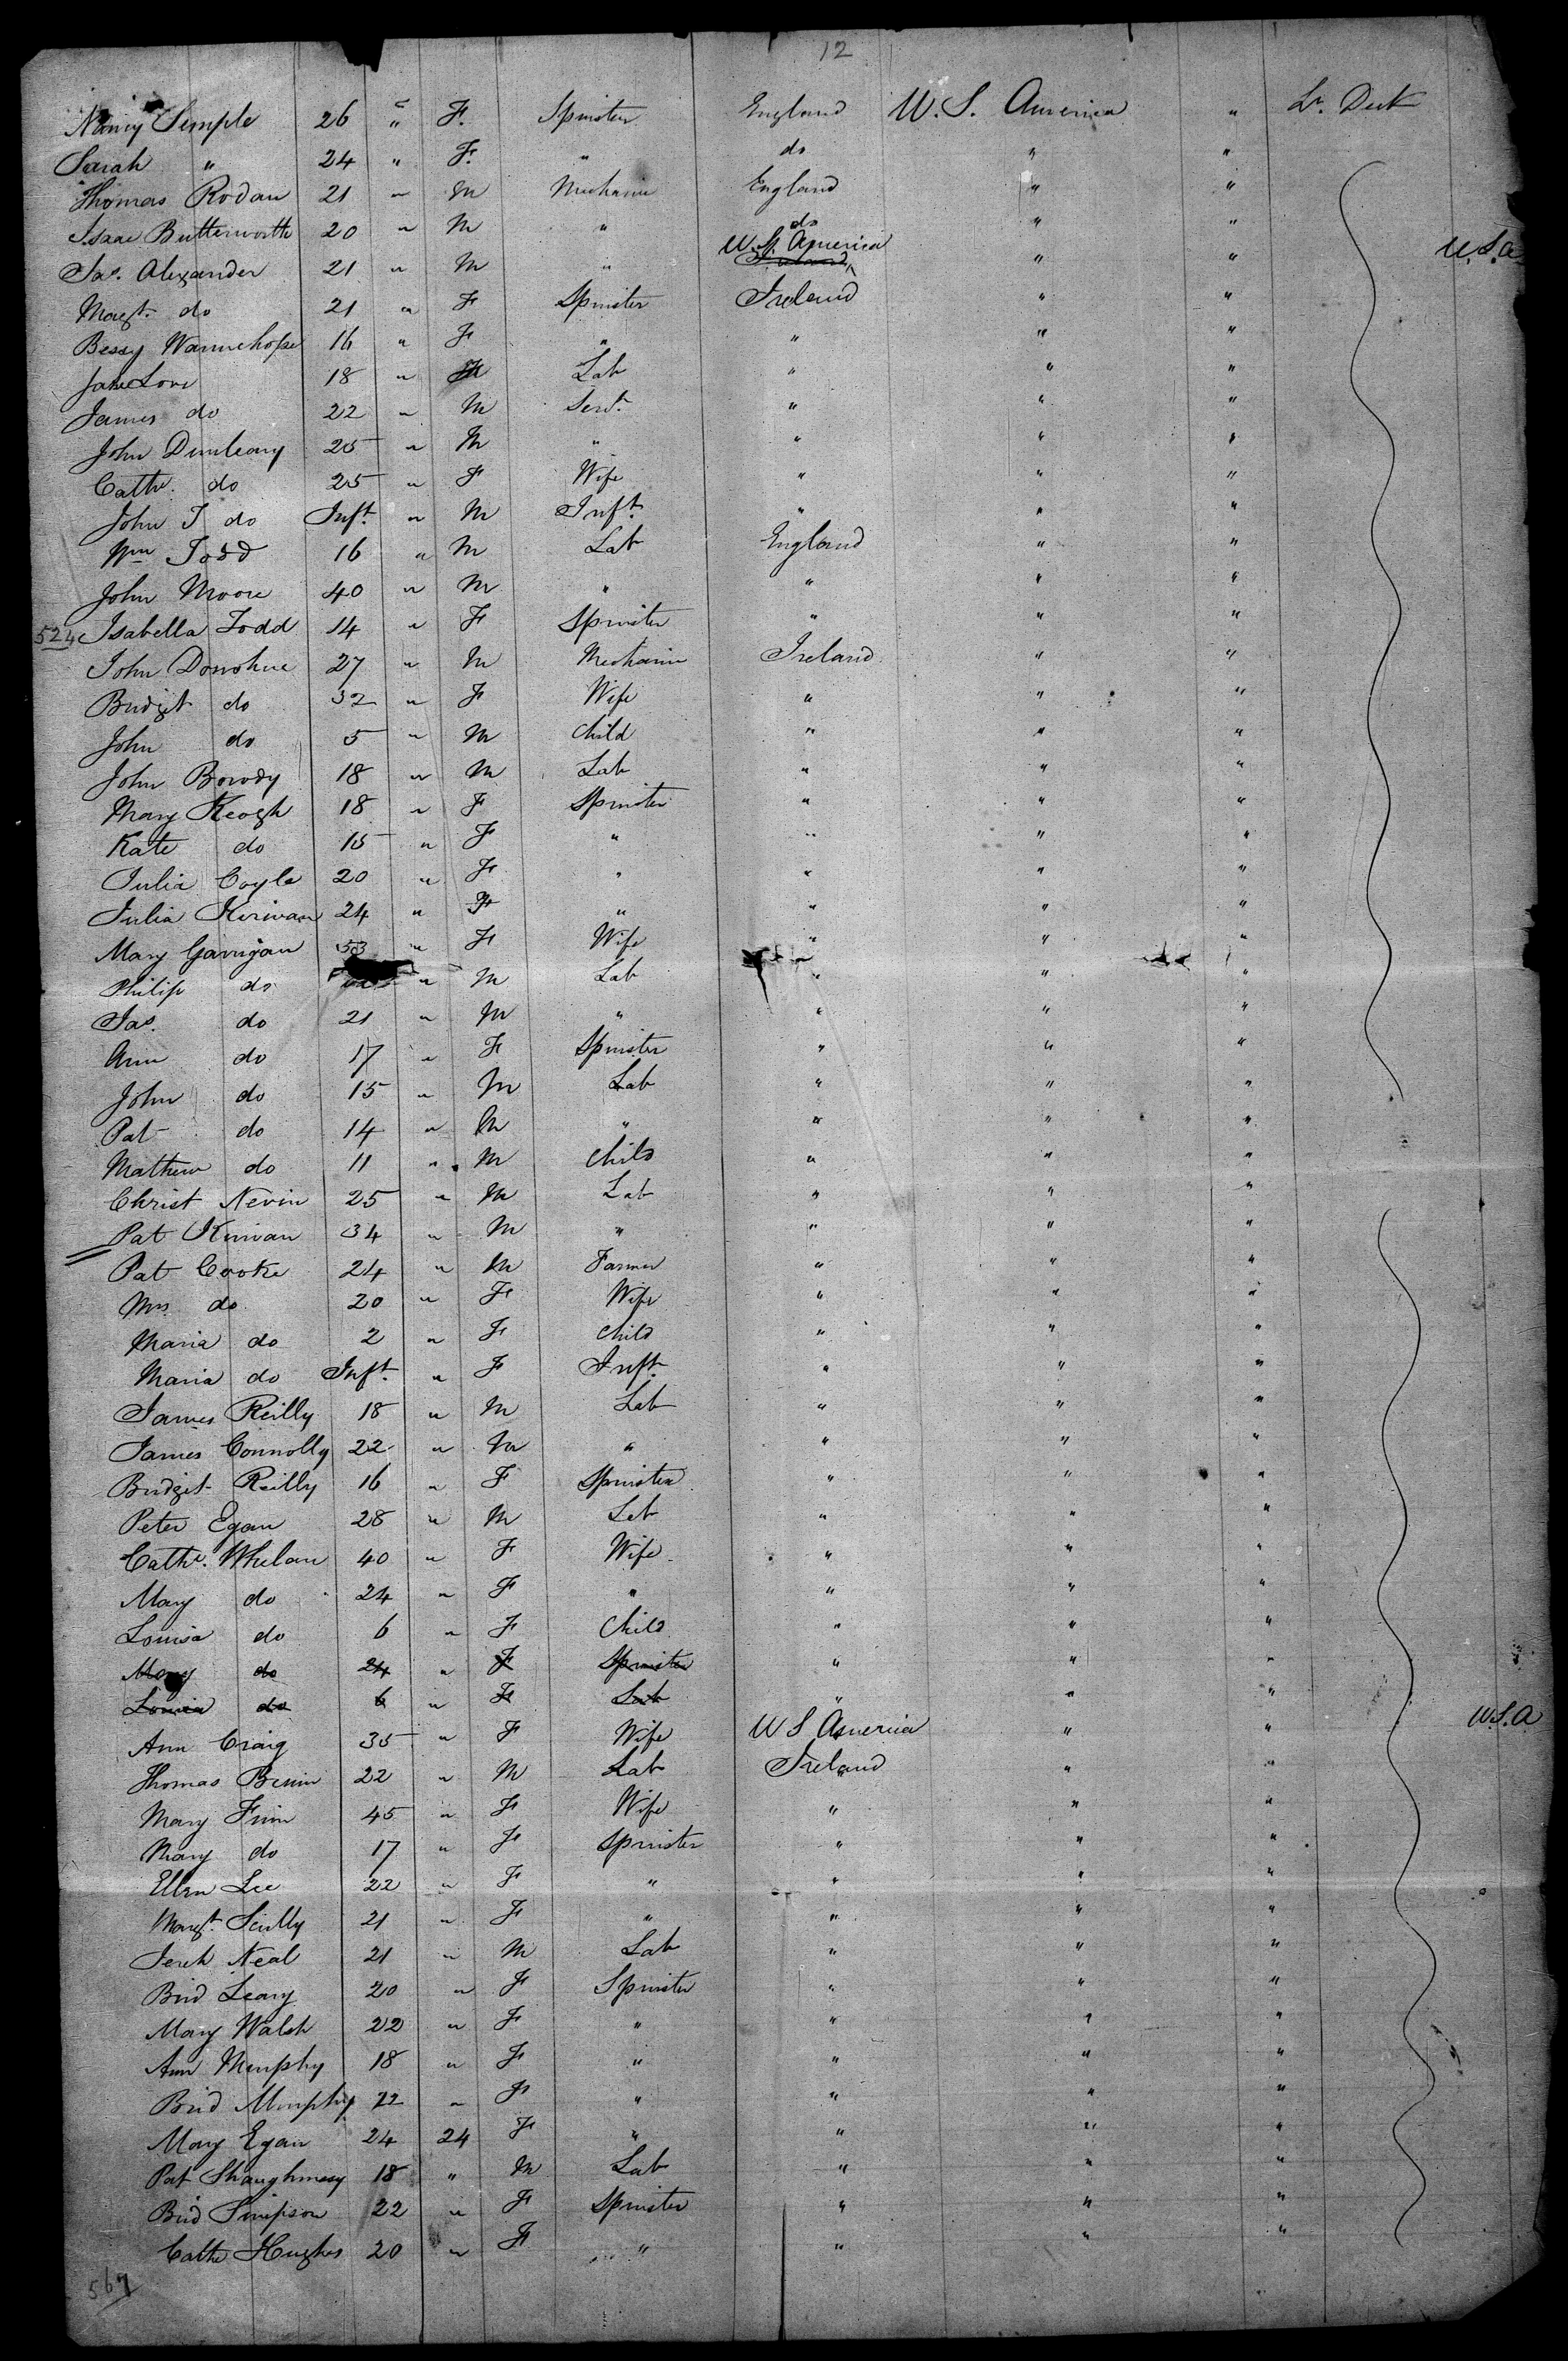 12
Nancy Semple 26 " F. Spinster England U. S. America " Lr. Deck
Sarah " 24 " F. " do " "
Thomas Rodan 21 " M Mechanic England " "
Isaac Butterworth 20 " M " do " "
Jas. Alexander 21 " M " U. S. America " " U.S.A
Margt. do 21 " F Spinster Ireland " "
Bessy 16 " F " " " "
Jane Love 18 " Lab " " "
James do 22 " M Servt. " " "
John Dunleavy 25 " M " " " "
Cathe. do 25 " F Wife " " "
John J do Inft. " M Inft. " " "
Wm Todd 16 " M Lab England " "
John Moore 40 " M " " " "
524 Isabella Todd 14 " F Spinster " " "
John Donohue 27 " M Mechanic Ireland " "
Bridget do 32 " F Wife " " "
John do 5 " M Child " " "
John 18 " M Lab " " "
Mary Keogh 18 " F Spinster " " "
Kate do 15 " F " " " "
Julia Coyle 20 " F " " " "
Julia Kirivan 24 " F " " " "
Mary Garrigan 53 " F Wife " " "
Philip do " M Lab " " "
Jas. do 21 " M " " " "
Ann do 17 " F Spinster " " "
John do 15 " M Lab " " "
Pat do 14 " M " " " "
Mathew do 11 " M Child " " "
Christ Nevin 25 " M Lab " " "
Pat Kirivan 34 " M " " " "
Pat Cooke 24 " M Farmer " " "
Mrs. do 20 " F Wife " " "
Maria do 2 " F Child " " "
Maria do Inft. " F Inft. " " "
James Reilly 18 " M Lab " " "
James Connolly 22 " M " " " "
Bridget Reilly 16 " F Spinster " " "
Peter Egan 28 " M Lab " " "
Cathe. Whelan 40 " F Wife " " "
Mary do 24 " F " " " "
Louisa do 6 " F Child " " "
Mary do 24 " F Spinster " " "
Louisa do 6 " F Lab " " "
Ann Craig 35 " F Wife U S America " " U.S.A
Thomas 22 " M Lab Ireland " "
Mary Finn 45 " F Wife " " "
Mary do 17 " F Spinster " " "
Ellen Lee 22 " F " " " "
Margt. Scully 21 " F " " " "
Jereh Neal 21 " M Lab " " "
Brid Leary 20 " F Spinster " " "
Mary Walsh 22 " F " " " "
Ann Murphy 18 " F " " " "
Brid Murphy 22 " F " " " "
Mary Egan 24 24 F " " " "
Pat Shaughnessy 18 " M Lab " " "
Brid Simpson 22 " F Spinster " " "
Cathe Hughes 20 " F " " " "
567